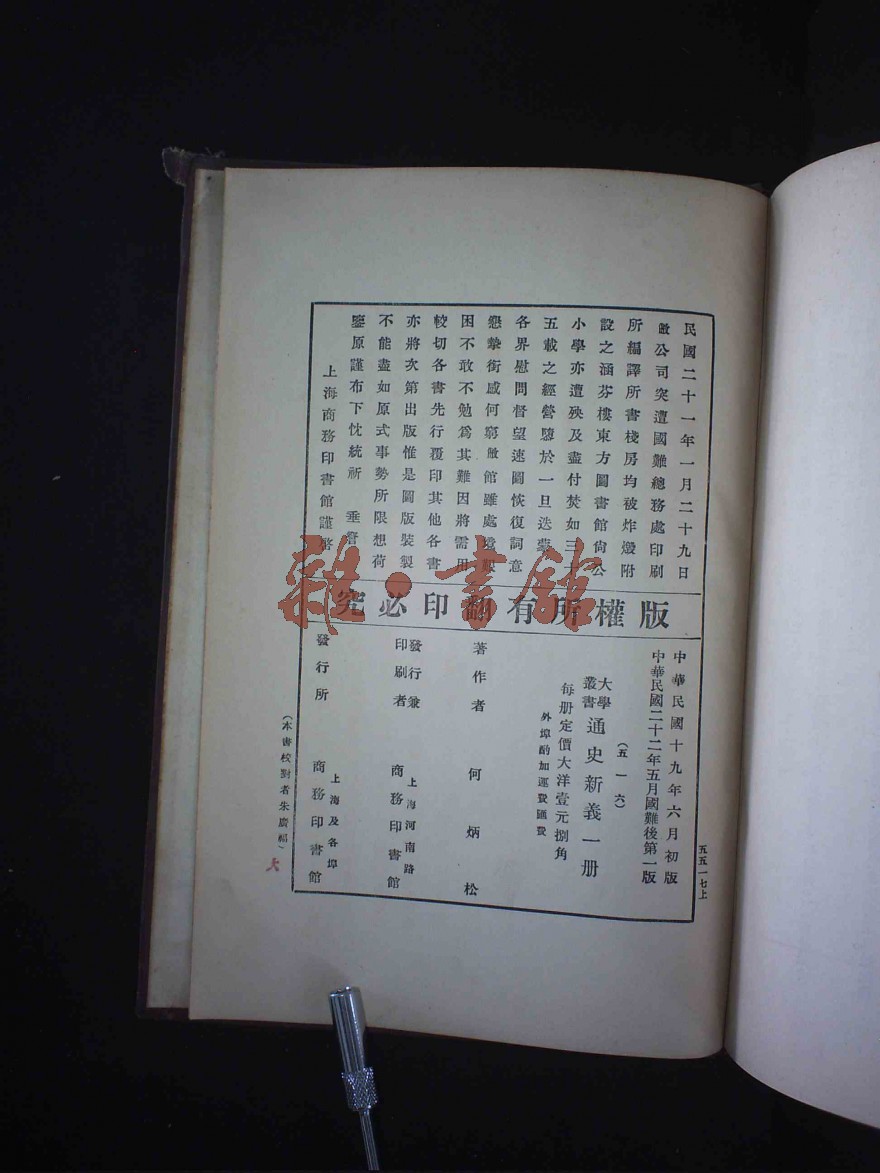 民國二十一年一月二十九日
敝公司突遭國難總務處印刷
所編譯所書棧房均被炸燬附
設之涵芬樓東方圖書館尙公
小學亦遭殃及盡付焚如三十
五載之經營隳於一旦迭蒙
各界慰問督望速圖恢復詞意
懇摯銜感何窮敝館雖處境艱
困不敢不勉爲其難因將需用
較切各書先行覆印其他各書
亦將次第出版惟是圖版裝製
不能盡如原式事勢所限想荷
鑒原謹布下忱統祈 垂詧
上海商務印書館謹啓
版權所有翻印必究
五五一七上
中華民國十九年六月初版
中華民國二十二年五月國難後第一版
(五一六)
大學叢書 通史新義一册
每册定價大洋壹元捌角
外埠酌加運費匯費
著作者 何炳松
發行兼印刷者 上海河南路 商務印書館
發行所 上海及各埠 商務印書館
(本書校對者朱廣福)
雜·書館